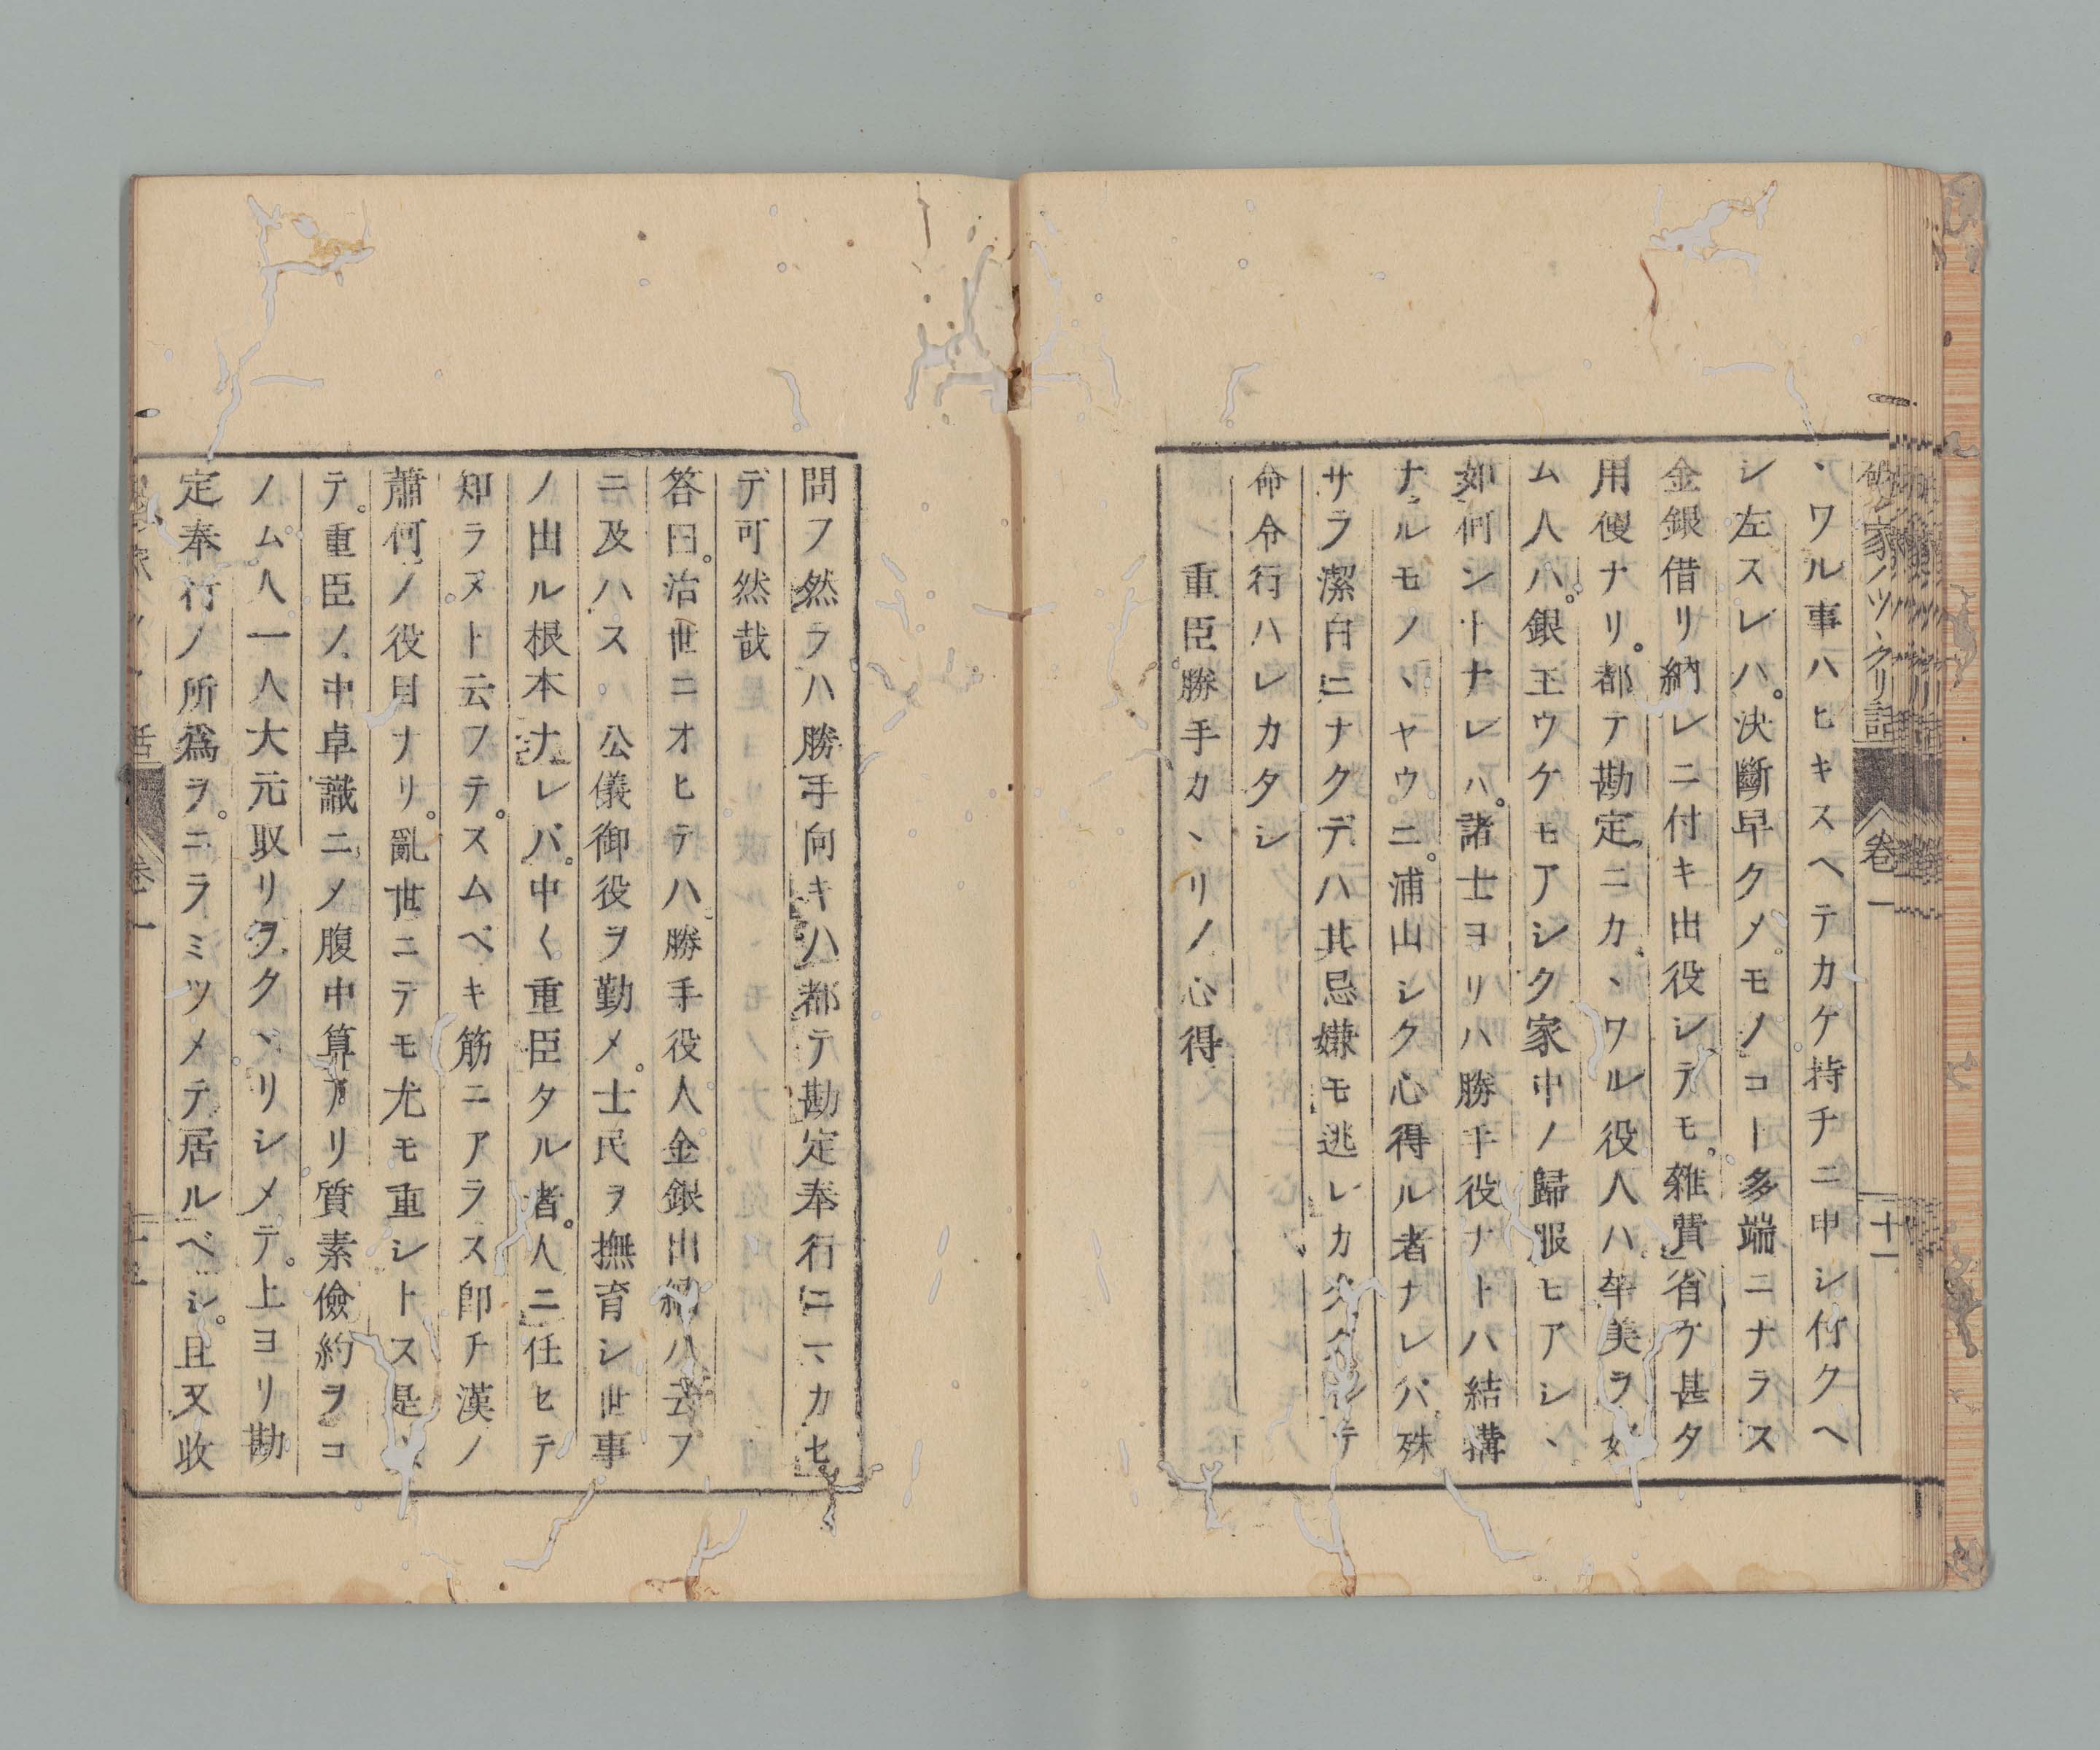 破レ家ノツヽクリ話 卷一 十一
ヽワル事ハヒキスヘテカケ持チニ申シ付クヘ
シ左スレハ。決斷早クメ。モノコト多端ニナラス
金銀借リ納レニ付キ出役シテモ。雜費省ケ甚タ
用便ナリ。都テ勘定ニカヽワル役人ハ華美ヲ好
ム人ハ。銀主ウケモアシク家中ノ歸服ヒアシヽ
如何ントナレハ。諸士ヨリハ勝手役ナトハ結搆
ナルモノヽヤウニ。浦山シク心得ル者ナレバ殊
サラ潔白ニナクデハ其忌嫌モ逃レカタクシテ
命令行ハレカタシ
重臣勝手カヽリノ心得
問フ然ラハ勝手向キハ都テ勘定奉行ニマカセ
デ可然哉
答曰。治世ニオヒテハ勝手役人金銀出納ハ云フ
ニ及ハス 公儀御役ヲ勤メ。士民ヲ撫育シ世事
ノ出ル根本ナレバ。中〱重臣タル者。人ニ任セテ
知ラヌト云フテ。スムベキ筋ニアラス即チ漢ノ
蕭何ノ役目ナリ。亂世ニテモ尤モ重シトス是
テ。重臣ノ中卓識ニメ腹中算アリ質素儉約ヲコ
ノム人一人大元取リヲクヽリシメテ。上ヨリ勘
定奉行ノ所爲ヲ。ニラミツメテ居ルベシ。且又收
卷一